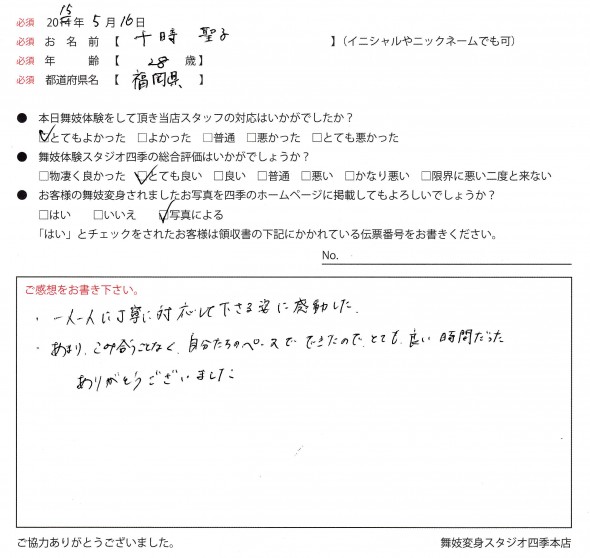 必須 2015年 5月 16日
必須 お名前【 十時 聖子 】(イニシャルやニックネームでも可)
必須 年齢【 28 歳】
必須 都道府県名【 福岡県 】
● 本日舞妓体験をして頂き当店スタッフの対応はいかがでしたか？
☑とてもよかった □よかった □普通 □悪かった □とても悪かった
● 舞妓体験スタジオ四季の総合評価はいかがでしょうか？
□物凄く良かった ☑とても良い □良い □普通 □悪い □かなり悪い □限界に悪い二度と来ない
● お客様の舞妓変身されましたお写真を四季のホームページに掲載してもよろしいでしょうか？
□はい □いいえ ☑写真による
「はい」とチェックをされたお客様は領収書の下記にかかれている伝票番号をお書きください。
No.
ご感想をお書き下さい。
・一人一人に丁寧に対応して下さる姿に感動した。
・あまり、こみ合うことなく、自分たちのペースで できたので、とても、良い時間だった
ありがとうございました
ご協力ありがとうございました。 舞妓変身スタジオ四季本店